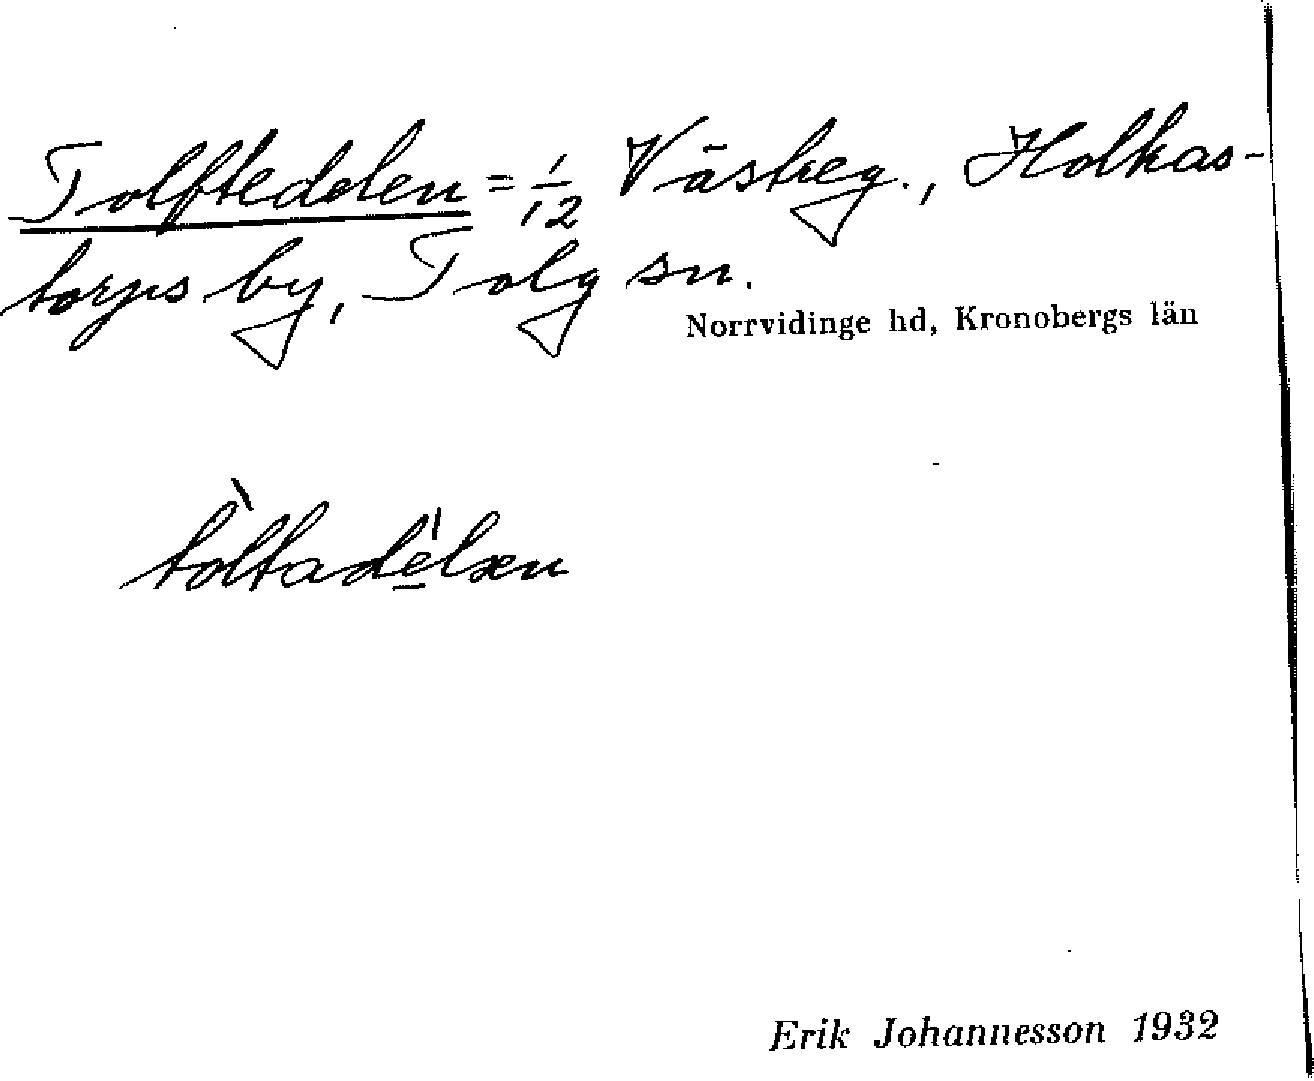 Tolftedelen = 1/12 Västreg., Holkas-
torps by, Tolg sn.
Norrvidinge hd, Kronobergs län
tòltadélsen
Erik Johannesson 1932